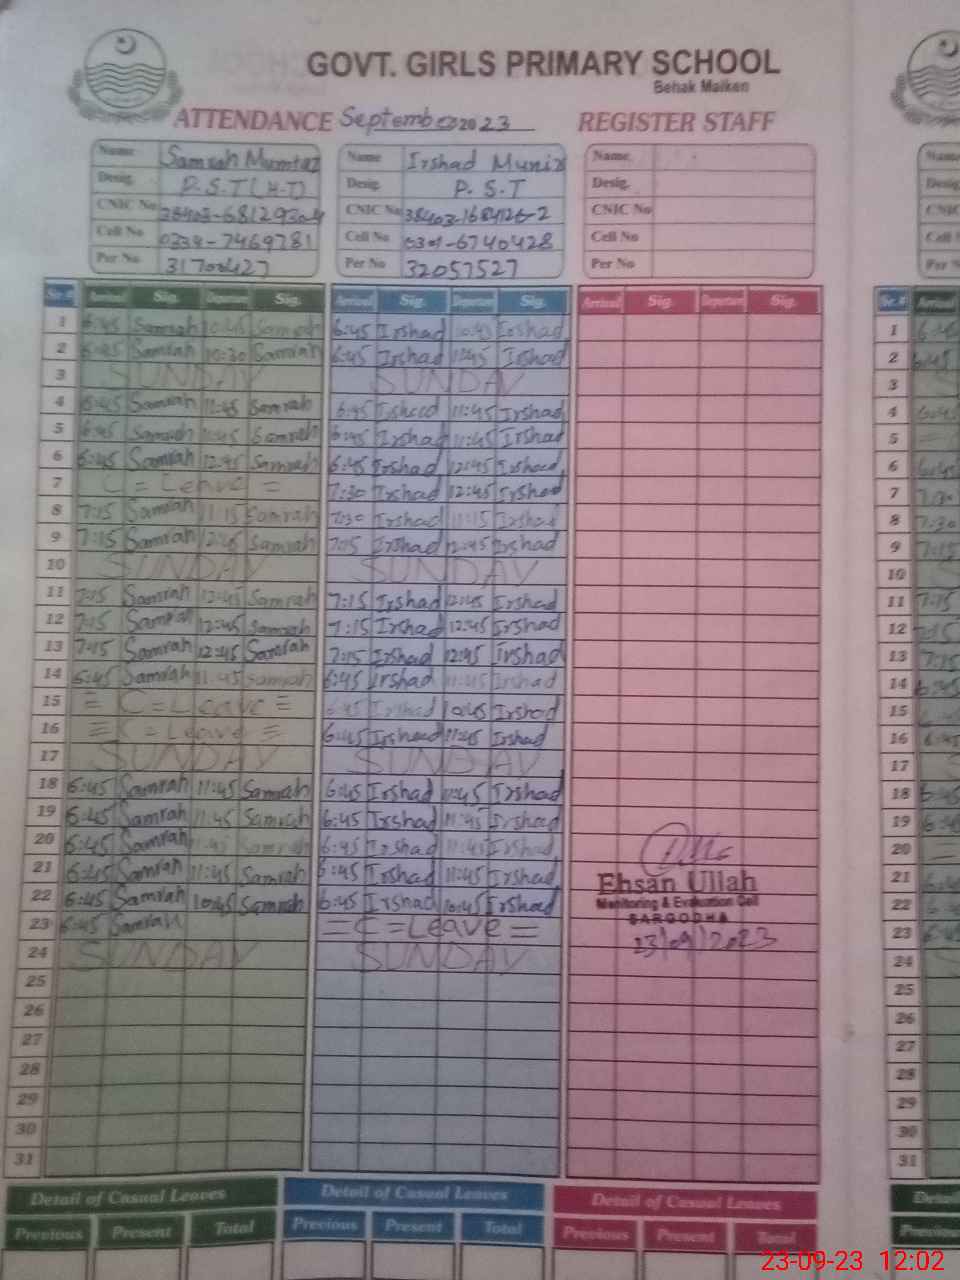 GOVT. GIRLS PRIMARY SCHOOL
Behak Maiken
ATTENDANCE September 2023 REGISTER STAFF
Name Samrah Mumtaz Name Irshad Munir Name
Desig. P.S.T (H.T) Desig. P.S.T Desig.
CNIC No CNIC No CNIC No
Cell No 0334-7469781 Cell No 0301-6740428 Cell No
Per No 31700427 Per No 32057527 Per No
Sr.# Arrival Sig. Departure Sig. Arrival Sig. Departure Sig. Arrival Sig. Departure Sig. Sr.# Arrival
1 6:45 Samrah 10:45 Samrah 6:45 Irshad 10:45 Irshad 1 6:45
2 6:45 Samrah 10:30 Samrah 6:45 Irshad 11:45 Irshad 2 6:45
3 SUNDAY SUNDAY 3
4 6:45 Samrah 11:45 Samrah 6:45 Irshad 11:45 Irshad 4 6:45
5 6:45 Samrah 11:45 Samrah 6:45 Irshad 11:45 Irshad 5
6 6:45 Samrah 12:45 Samrah 6:45 Irshad 12:45 Irshad 6 6:45
7 C = Leave = 7:30 Irshad 12:45 Irshad 7 7:30
8 7:15 Samrah 11:15 Samrah 7:30 Irshad 11:15 Irshad 8 7:30
9 7:15 Samrah 12:45 Samrah 7:15 Irshad 12:45 Irshad 9 7:15
10 SUNDAY SUNDAY 10
11 7:15 Samrah 12:45 Samrah 7:15 Irshad 12:45 Irshad 11 7:15
12 7:15 Samrah 12:45 Samrah 7:15 Irshad 12:45 Irshad 12 7:15
13 7:15 Samrah 12:45 Samrah 7:15 Irshad 12:45 Irshad 13 7:15
14 6:45 Samrah 11:45 Samrah 6:45 Irshad 11:45 Irshad 14 6:45
15 = C = Leave = 6:45 Irshad 10:45 Irshad 15
16 = C = Leave = 6:45 Irshad 11:45 Irshad 16 6:45
17 SUNDAY SUNDAY 17
18 6:45 Samrah 11:45 Samrah 6:45 Irshad 11:45 Irshad 18 6:45
19 6:45 Samrah 11:45 Samrah 6:45 Irshad 11:45 Irshad 19 6:45
20 6:45 Samrah 11:45 Samrah 6:45 Irshad 11:45 Irshad 20
21 6:45 Samrah 11:45 Samrah 6:45 Irshad 11:45 Irshad 21 6:45
22 6:45 Samrah 10:45 Samrah 6:45 Irshad 10:45 Irshad 22
23 6:45 Samrah = C = Leave = 23 6:45
24 SUNDAY SUNDAY 24
Ehsan Ullah
Monitoring & Evaluation Cell
SARGODHA
23/09/2023
25 25
26 26
27 27
28 28
29 29
30 30
31 31
Detail of Casual Leaves Detail of Casual Leaves Detail of Casual Leaves
Previous Present Total Previous Present Total Previous Present Total
23-09-23 12:02